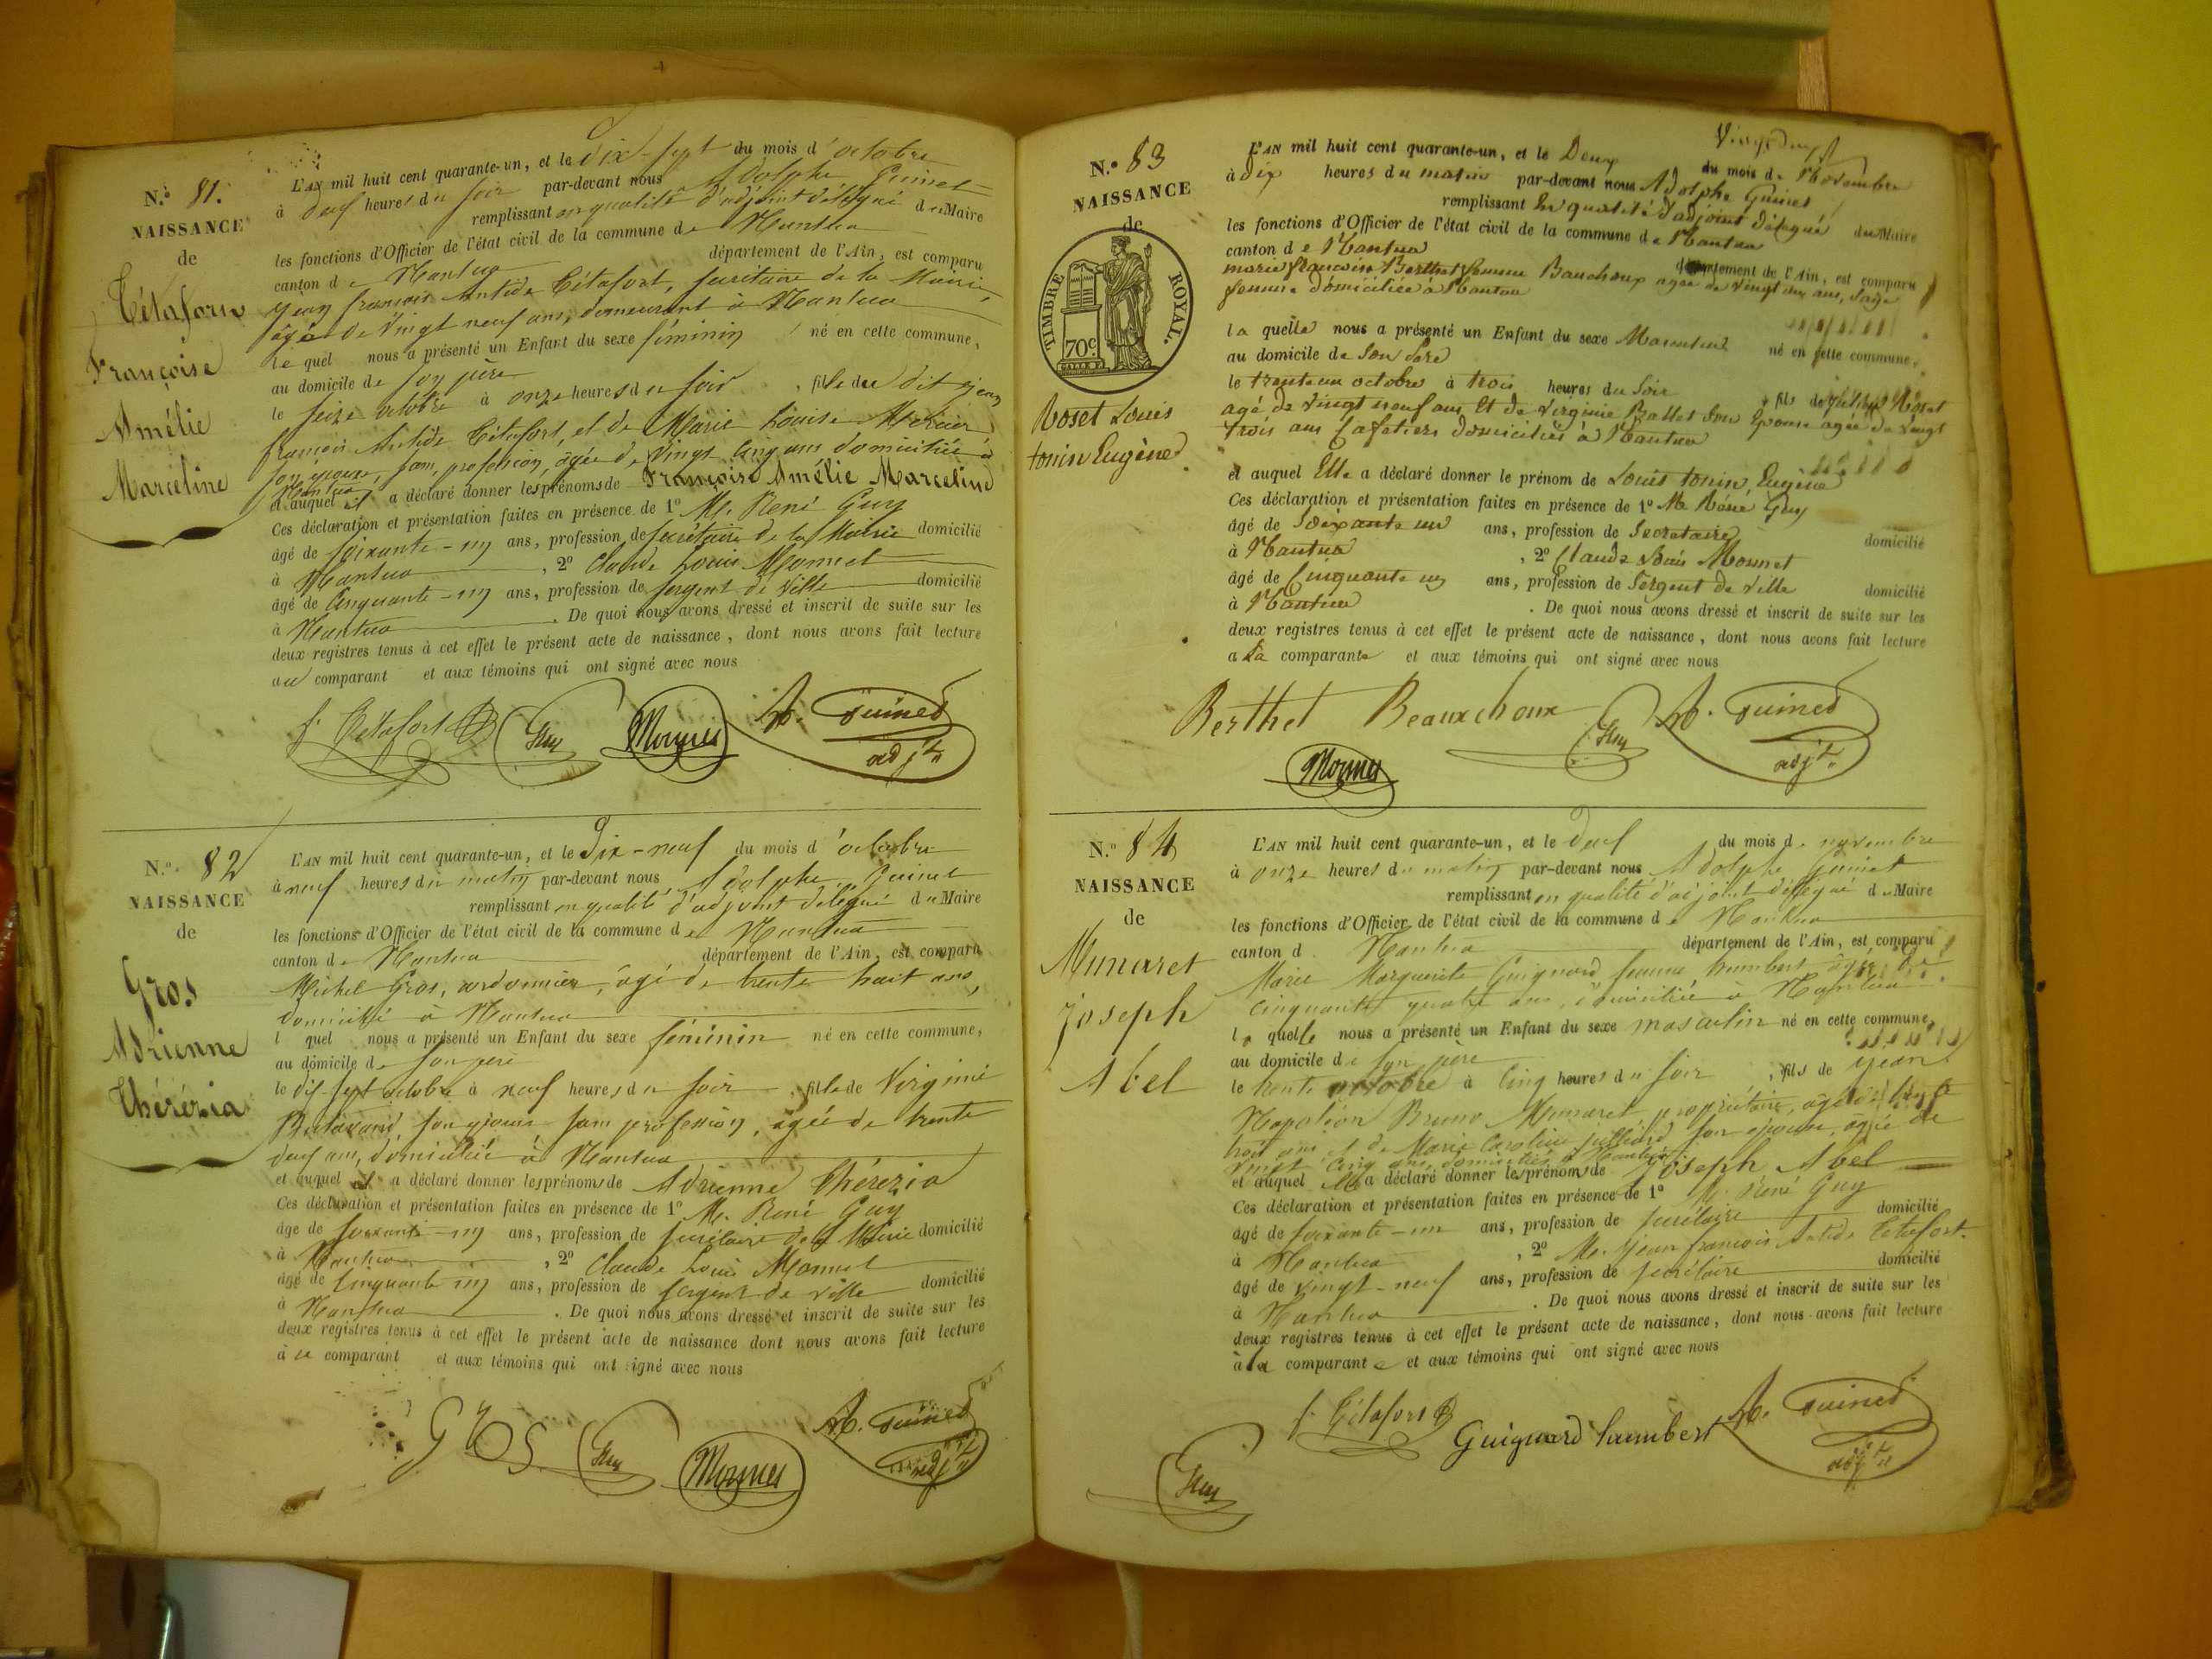 N.° 81.
NAISSANCE
de
Cétafort
Françoise
Amélie
Marceline
L'AN mil huit cent quarante-un, et le dix-sept du mois d'octobre
à deux heures du soir par-devant nous Adolphe Guinet
remplissant en qualité d'adjoint délégué du Maire
les fonctions d'Officier de l'état civil de la commune de Nantua
canton de Nantua département de l'Ain, est comparu
Jean françois Antide Cétafort, secrétaire de la Mairie,
âgé de vingt neuf ans, demeurant à Nantua
lequel nous a présenté un Enfant du sexe féminin né en cette commune,
au domicile de son père
le seize octobre à onze heures du soir, fille du dit Jean
françois Antide Cétafort, et de Marie Louise Mercier
son épouse, sans profession, âgée de vingt cinq ans domiciliée à
Nantua
et auquel il a déclaré donner les prénoms de Françoise Amélie Marceline
Ces déclaration et présentation faites en présence de 1° M. René Guy
âgé de soixante-un ans, profession de secrétaire de la Mairie domicilié
à Nantua, 2° Claude Louis Monnet
âgé de cinquante-un ans, profession de sergent de ville domicilié
à Nantua. De quoi nous avons dressé et inscrit de suite sur les
deux registres tenus à cet effet le présent acte de naissance, dont nous avons fait lecture
au comparant et aux témoins qui ont signé avec nous
f. Cétafort Guy Monnet A. Guinet
adjt
N.° 82
NAISSANCE
de
Gros
Adrienne
Thérézia
L'AN mil huit cent quarante-un, et le dix-neuf du mois d'octobre
à neuf heures du matin par-devant nous Adolphe Guinet
remplissant en qualité d'adjoint délégué du Maire
les fonctions d'Officier de l'état civil de la commune de Nantua
canton de Nantua département de l'Ain, est comparu
Michel Gros, cordonnier, âgé de trente huit ans,
domicilié à Nantua
l quel nous a présenté un Enfant du sexe féminin né en cette commune,
au domicile de son père
le dix-sept octobre à neuf heures du soir, fille de Virginie
son épouse sans profession, âgée de trente
deux ans, domiciliée à Nantua
et auquel il a déclaré donner les prénoms de Adrienne Thérézia
Ces déclaration et présentation faites en présence de 1° M. René Guy
âgé de soixante-un ans, profession de secrétaire de la Mairie domicilié
à Nantua, 2° Claude Louis Monnet
âgé de cinquante un ans, profession de sergent de ville domicilié
à Nantua. De quoi nous avons dressé et inscrit de suite sur les
deux registres tenus à cet effet le présent acte de naissance dont nous avons fait lecture
à ce comparant et aux témoins qui ont signé avec nous
Gros Guy Monnet A. Guinet
adjt
N.° 83
NAISSANCE
de
TIMBRE ROYAL.
70c.
Roset Louis
tonin Eugène
L'AN mil huit cent quarante-un, et le Deux du mois de Novembre
à dix heures du matin par-devant nous Adolphe Guinet
remplissant en qualité d'adjoint délégué du Maire
les fonctions d'Officier de l'état civil de la commune de Nantua
canton de Nantua département de l'Ain, est comparu
marie Berthet femme Bauchoux agée de vingt ans, sage
femme domiciliée à Nantua
la quelle nous a présenté un Enfant du sexe Masculin né en cette commune,
au domicile de son Père
le trente un octobre à trois heures du soir, fils de Roset
agé de vingt neuf ans et de Virginie Ballet son Epouse agée de vingt
trois ans Cafetiers domiciliés à Nantua
et auquel Elle a déclaré donner le prénom de Louis tonin Eugène
Ces déclaration et présentation faites en présence de 1° M. Réné Guy
âgé de Soixante un ans, profession de Secretaire domicilié
à Nantua, 2° Claude Louis Monnet
âgé de Cinquante un ans, profession de Sergent de ville domicilié
à Nantua. De quoi nous avons dressé et inscrit de suite sur les
deux registres tenus à cet effet le présent acte de naissance, dont nous avons fait lecture
a La comparante et aux témoins qui ont signé avec nous
Berthet Beauxchoux Guy A. Guinet
Monnet adjt
N.° 84
NAISSANCE
de
Munaret
Joseph
Abel
L'AN mil huit cent quarante-un, et le deux du mois de novembre
à onze heures du matin par-devant nous Adolphe Guinet
remplissant en qualité d'adjoint délégué du Maire
les fonctions d'Officier de l'état civil de la commune de Nantua
canton d Nantua département de l'Ain, est comparu
Marie Marguerite Guignard femme humbert âgée de
cinquante quatre ans, domiciliée à Nantua
la quelle nous a présenté un Enfant du sexe masculin né en cette commune,
au domicile de son père
le trente octobre à cinq heures du soir, fils de Jean
Napoléon Bruno Munaret, propriétaire, âgé de trente
trois ans et de Marie Caroline Julliard son épouse, âgée de
vingt cinq ans, domiciliés à Nantua
et auquel Elle a déclaré donner les prénoms de Joseph Abel
Ces déclaration et présentation faites en présence de 1° M. René Guy
âgé de soixante-un ans, profession de secrétaire domicilié
à Nantua, 2° M. Jean françois Antide Cétafort
âgé de vingt-neuf ans, profession de secrétaire domicilié
à Nantua. De quoi nous avons dressé et inscrit de suite sur les
deux registres tenus à cet effet le présent acte de naissance, dont nous avons fait lecture
à la comparante et aux témoins qui ont signé avec nous
f. Cétafort Guignard humbert A. Guinet
Guy adjt